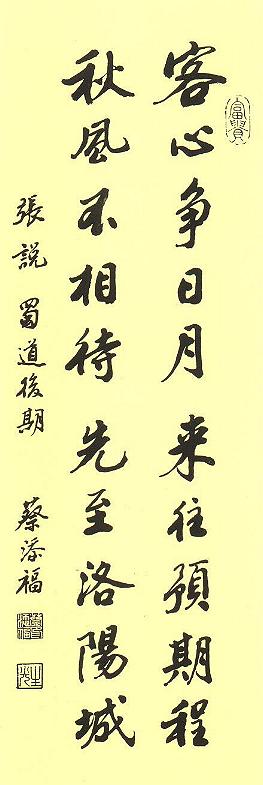 客心争日月来往預期程
秋風不相待先至洛陽城
張說 蜀道後期 蔡添福